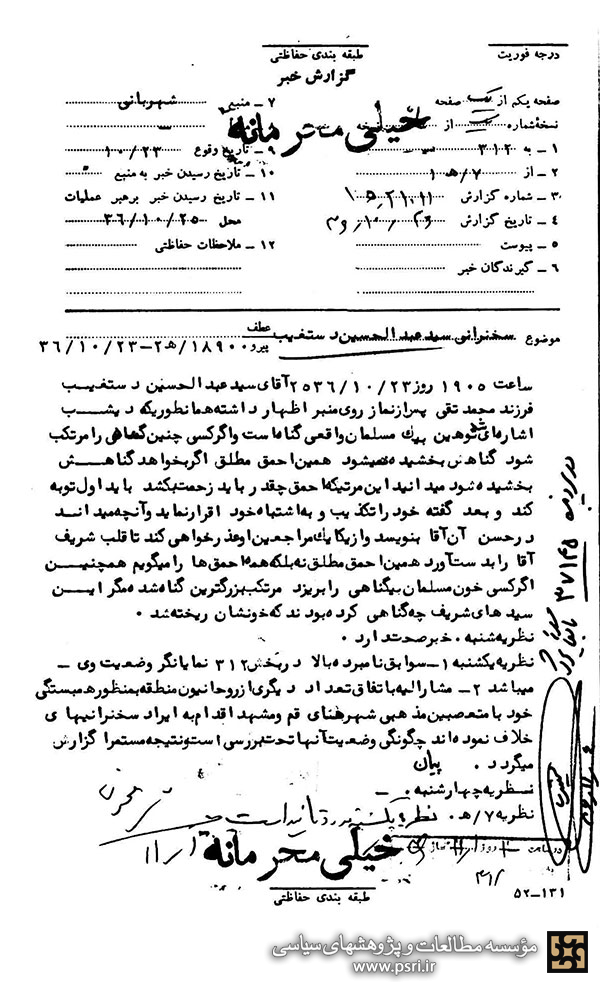 درجه فوریت
طبقه بندی حفاظتی
گزارش خبر
صفحه یکم از یک صفحه
۷ ـ منبع شهربانی
نسخهٔ شماره از
خیلی محرمانه
۱ ـ به ۳۱۲
۹ ـ تاریخ وقوع ۱۰/۲۳
۲ ـ از ۷/ه‍ ۱
۱۰ ـ تاریخ رسیدن خبر به منبع
۳ ـ شماره گزارش
۱۱ ـ تاریخ رسیدن خبر برهبر عملیات
۴ ـ تاریخ گزارش
محل ۳۶/۱۰/۲۵
۵ ـ پیوست
۱۲ ـ ملاحظات حفاظتی
۶ ـ گیرندگان خبر
موضوع سخنرانی سید عبدالحسین دستغیب عطف
پیرو ۱۸۹۰۰/ه‍ ۲ـ ۳۶/۱۰/۲۳
ساعت ۱۹۰۵ روز ۲۵۳۶/۱۰/۲۳ آقای سید عبدالحسین دستغیب
فرزند محمد تقی پس از نماز روی منبر اظهار داشته همانطوریکه دیشب
اشاره‌ای شد توهین بیك مسلمان واقعی گناه است واگر کسی چنین گناهی را مرتکب
شود گناهش بخشیده نمیشود همین احمق مطلق اگر بخواهد گناهش
بخشیده شود میدانید این مرتیکه احمق چقدر باید زحمت بکشد باید اول توبه
کند و بعد گفته خود را تکذیب و به اشتباه خود اقرار نماید و آنچه میداند
در حسن آن آقا بنویسد واز یکایك مراجعین او عذرخواهی کند تا قلب شریف
آقا را بدست آورد همین احمق مطلق نه بلکه همه احمق‌ها را میگویم همچنین
اگر کسی خون مسلمان بیگناهی را بریزد مرتکب بزرگترین گناه شده مگر این
سیدهای شریف چه گناهی کرده بودند که خونشان ریخته شد .
نظریه شنبه . خبر صحت دارد .
نظریه یکشنبه ۱ـ سوابق نامبرده بالا در بخش ۳۱۲ نمایانگر وضعیت وی
میباشد ۲ـ مشارالیه باتفاق تعداد دیگری از روحانیون منطقه بمنظور همبستگی
خود با متعصبین مذهبی شهرهای قم و مشهد اقدام به ایراد سخنرانیهای
خلاف نموده اند چگونگی وضعیت آنها تحت بررسی است و نتیجه مستمرا گزارش
میگردد . پیان
نظریه چهارشنبه . ـ
نظریه ۷/ه‍ . نظریه یکشنبه مورد تائید است
خیلی محرمانه
طبقه بندی حفاظتی
۱۳۱ـ۵۲
۳۷۱۴۵
مؤسسه مطالعات و پژوهشهای سیاسی
www.psri.ir